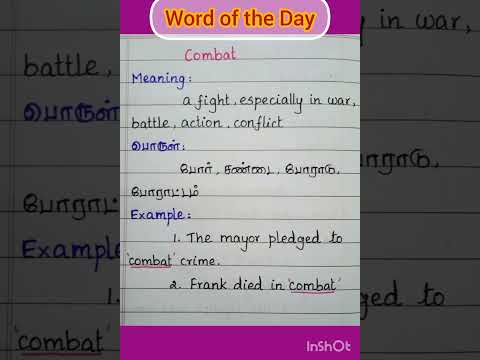 Word of the Day
Combat
Meaning:
a fight, especially in war,
battle, action, conflict
பொருள்:
போர், சண்டை, போராடு,
போராட்டம்
Example:
1. The mayor pledged to
'combat' crime.
2. Frank died in 'combat'
InShOt